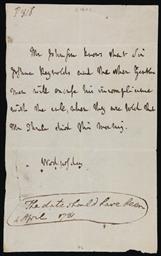 P. 418
Mr Johnson knows that Sir
Joshua Reynolds and the other Gentle
men will excuse his incompliance
with the call, when they are told that
Mr Thrale died this morning.
Wednesday
The date should have been
4 April 1781